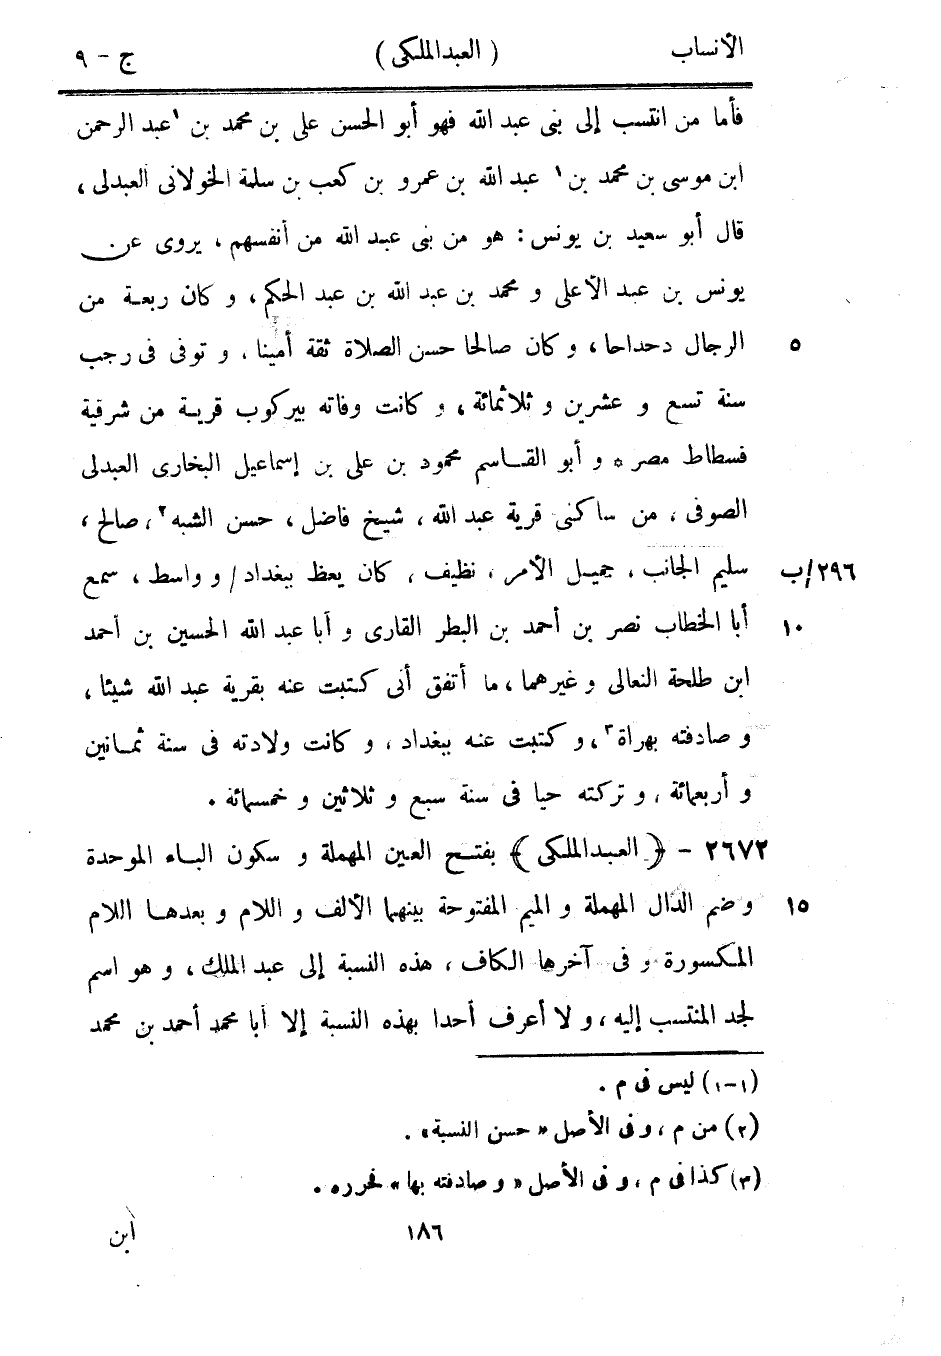 الأنساب ( العبدالملكى ) ج - ٩
فأما من انتسب إلى بنى عبد الله فهو أبو الحسن على بن محمد بن ¹عبد الرحمن
ابن موسى بن محمد بن¹ عبد الله بن عمرو بن كعب بن سلمة الخولانى العبدلى ،
قال أبو سعيد بن يونس : هو من بنى عبد الله من أنفسهم ، يروى عن
يونس بن عبد الأعلى و محمد بن عبد الله بن عبد الحكم ، و كان ربعة من
الرجال دحداحا ، و كان صالحا حسن الصلاة ثقة أمينا ، و توفى فى رجب ٥
سنة تسع و عشرين و ثلاثمائة ، و كانت وفاته بيركوب قرية من شرقية
فسطاط مصر * و أبو القاسم محمود بن على بن إسماعيل البخارى العبدلى
الصوفى ، من ساكنى قرية عبد الله ، شيخ فاضل ، حسن الشبه² ، صالح ،
سليم الجانب ، جميل الأمر ، نظيف ، كان يعظ ببغداد / و واسط ، سمع ٢٩٦/ب
أبا الخطاب نصر بن أحمد بن البطر القارى و أبا عبد الله الحسين بن أحمد ١٠
ابن طلحة النعالى و غيرهما ، ما أتفق أنى كتبت عنه بقرية عبد الله شيئا ،
و صادفته بهراة³ ، و كتبت عنه ببغداد ، و كانت ولادته فى سنة ثمانين
و أربعمائة ، و تركته حيا فى سنة سبع و ثلاثين و خمسمائة .
٢٦٧٢ - ﴿ العبدالملكى ﴾ بفتح العين المهملة و سكون الباء الموحدة
و ضم الدال المهملة و الميم المفتوحة بينهما الألف و اللام و بعدها اللام ١٥
المكسورة و فى آخرها الكاف ، هذه النسبة إلى عبد الملك ، و هو اسم
لجد المنتسب إليه ، و لا أعرف أحدا بهذه النسبة إلا أبا محمد أحمد بن محمد
(١-١) ليس فى م .
(٢) من م ، و فى الأصل « حسن النسبة » .
(٣) كذا فى م ، و فى الأصل « و صادفته بها » فحرره .
١٨٦ ابن